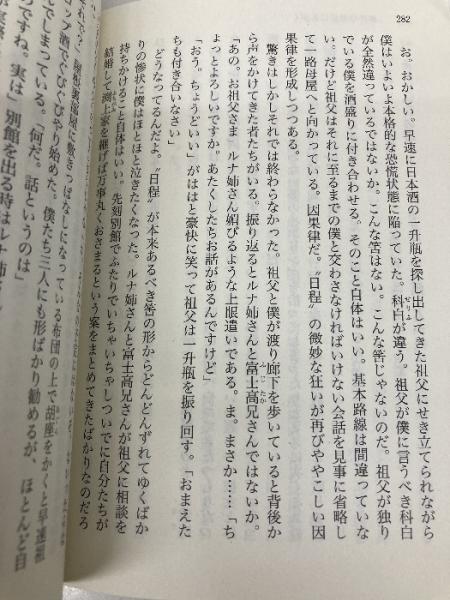 282
お。おかしい。早速に日本酒の一升瓶を探し出してきた祖父にせき立てられながら
僕はいよいよ本格的な恐慌状態に陥っていた。科白が違う。祖父が僕に言うべき科白
が全然違っているではないか。こんな筈はない。こんな筈じゃないのだ。祖父が独り
でいる僕を酒盛りに付き合わせる。そのこと自体はいい。基本路線は間違っていな
い。だけど祖父はそれに至るまでの僕と交わさなければいけない会話を見事に省略し
て一路母屋へと向かっている。因果律だ。〝日程〟の微妙な狂いが再びややこしい因
果律を形成しつつある。
驚きはしかしそれでは終わらなかった。祖父と僕が渡り廊下を歩いていると背後か
ら声をかけてきた者たちがいる。振り返るとルナ姉さんと富士高兄さんではないか。
「あの。お祖父さま」ルナ姉さん媚びるような上眼遣いである。ま。まさか……「ち
ょっとよろしいですか。あたくしたちお話があるんですけど」
「おう。ちょうどいい」がははと豪快に笑って祖父は一升瓶を振り回す。「おまえた
ちも付き合いなさい」
どうなってるんだよ。〝日程〟が本来あるべき筈の形からどんどんずれてゆくばか
りの惨状に僕はほとほと泣きたくなった。ルナ姉さんと富士高兄さんが祖父に相談を
持ちかけること自体はいい。先刻別館でふたりでいちゃいちゃしついでに自分たちが
結婚して渕上家を継げば万事丸くおさまるという案をまとめてきたばかりなのだろ
敷きっぱなしになっている布団の上で胡座をかくと早速祖
ップ酒でちびちびやり始めた。僕たち三人にも形ばかり勧めるが、ほとんど自
でしまっている。「何だ。話というのは」
うですね。実は」別館を出る時はルナ姉